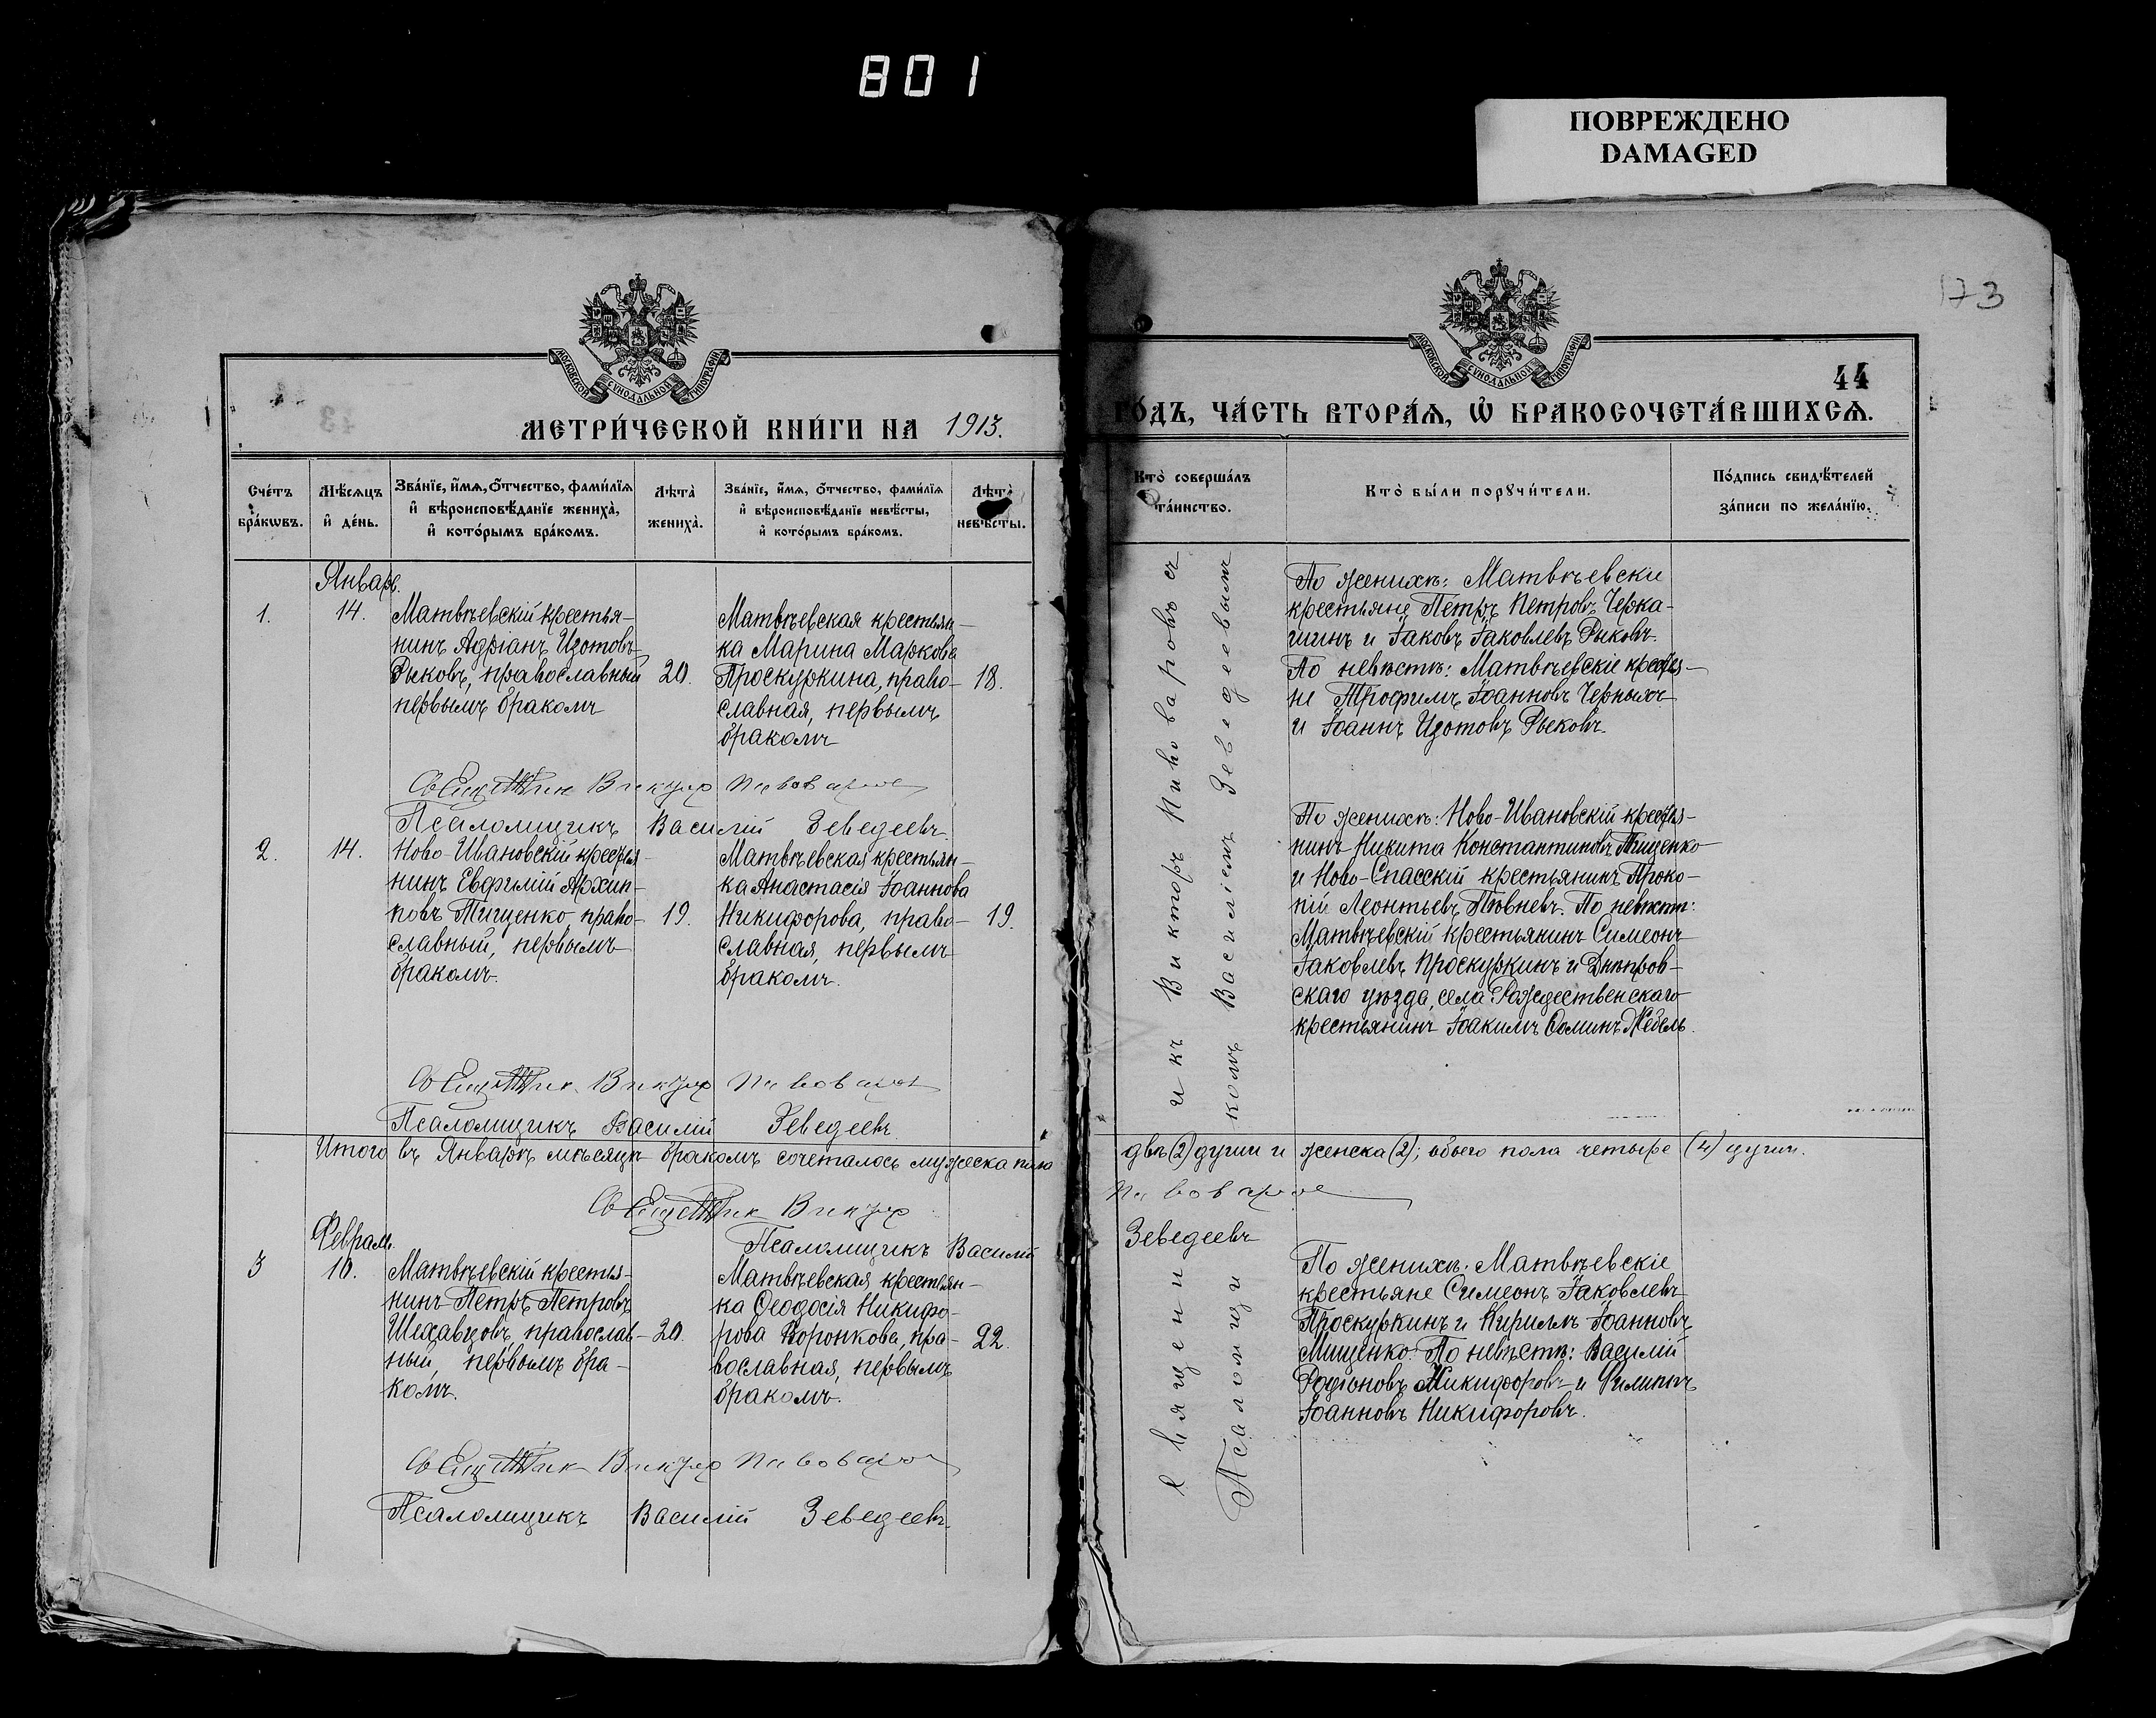 801
ПОВРЕЖДЕНО
DAMAGED
173
МОСКОВСКОЙ СѴНОДАЛЬНОЙ ТИПОГРАФІИ
МОСКОВСКОЙ СѴНОДАЛЬНОЙ ТИПОГРАФІИ
44
МЕТРИ́ЧЕСКОЙ КНИ́ГИ НА 1913.
ГО́ДЪ, ЧА́СТЬ ВТОРА́Ѧ, Ѡ҆ БРАКОСОЧЕТА́ВШИХСѦ.
Сче́тъ
бра́кѡвъ.
Мѣ́сѧцъ
и҆ де́нь.
Зва́нїе, и҆́мѧ, ѻ҆́тчество, фами́лїѧ
и҆ вѣроисповѣ́данїе жениха̀,
и҆ кото́рымъ бра́комъ.
Лѣта̀
жениха̀.
Зва́нїе, и҆́мѧ, ѻ҆́тчество, фами́лїѧ
и҆ вѣроисповѣ́данїе невѣ́сты,
и҆ кото́рымъ бра́комъ.
Лѣта̀
невѣ́сты.
Кто̀ соверша́лъ
та́инство.
Кто̀ бы́ли порꙋчи́тели.
По́дпись свидѣ́телей
за́писи по жела́нїю.
Январь.
1.
14.
Матвѣевскій крестья-
нинъ Адріанъ Изотовъ
Рыковъ, православный
первымъ бракомъ
20.
Матвѣевская крестьян-
ка Марина Маркова
Проскуркина, право-
славная, первымъ
бракомъ
18.
По женихѣ: Матвѣевскіе
крестьяне Петръ Петровъ Черка-
шинъ и Іаковъ Іаковлевъ Рыковъ.
По невѣстѣ: Матвѣевскіе крестья-
не Трофимъ Іоанновъ Черныхъ
и Іоаннъ Изотовъ Рыковъ.
Священникъ Викторъ Пивоваровъ
Псаломщикъ Василій Зеведеевъ.
2.
14.
Ново-Ивановскій крестья-
нинъ Евфимій Архип-
повъ Тищенко право-
славный, первымъ
бракомъ.
19.
Матвѣевская крестьян-
ка Анастасія Іоаннова
Никифорова, право-
славная, первымъ
бракомъ.
19.
По женихѣ: Ново-Ивановскій крестья-
нинъ Никита Константиновъ Тищенко
и Ново-Спасскій крестьянинъ Проко-
пій Леонтьевъ Пивневъ. По невѣстѣ:
Матвѣевскій крестьянинъ Симеонъ
Іаковлевъ Проскуркинъ и Днѣпров-
скаго уѣзда, села Рождественскаго
крестьянинъ Іоакимъ Ѳоминъ Жебель.
Священникъ Викторъ Пивоваровъ
Псаломщикъ Василій Зеведеевъ
Итого въ Январѣ мѣсяцѣ бракомъ сочеталось мужеска пола
двѣ (2) души и женска (2); обоего пола четыре (4) души.
Священникъ Викторъ Пивоваровъ
Псаломщикъ Василій Зеведеевъ
Феврал.
3
10.
Матвѣевскій крестья-
нинъ Петръ Петровъ
Шехавцовъ, православ-
ный, первымъ бра-
комъ.
20.
Матвѣевская, крестьян-
ка Ѳеодосія Никифо-
рова Воронкова, пра-
вославная, первымъ
бракомъ.
22.
По женихѣ: Матвѣевскіе
крестьяне Симеонъ Іаковлевъ
Проскуркинъ и Кириллъ Іоанновъ
Мищенко. По невѣстѣ: Василій
Родіоновъ Никифоровъ и Филиппъ
Іоанновъ Никифоровъ.
Священникъ Викторъ Пивоваровъ
Псаломщикъ Василій Зеведеевъ.
Священникъ Викторъ Пивоваровъ съ
Псаломщикомъ Василіемъ Зеведеевымъ